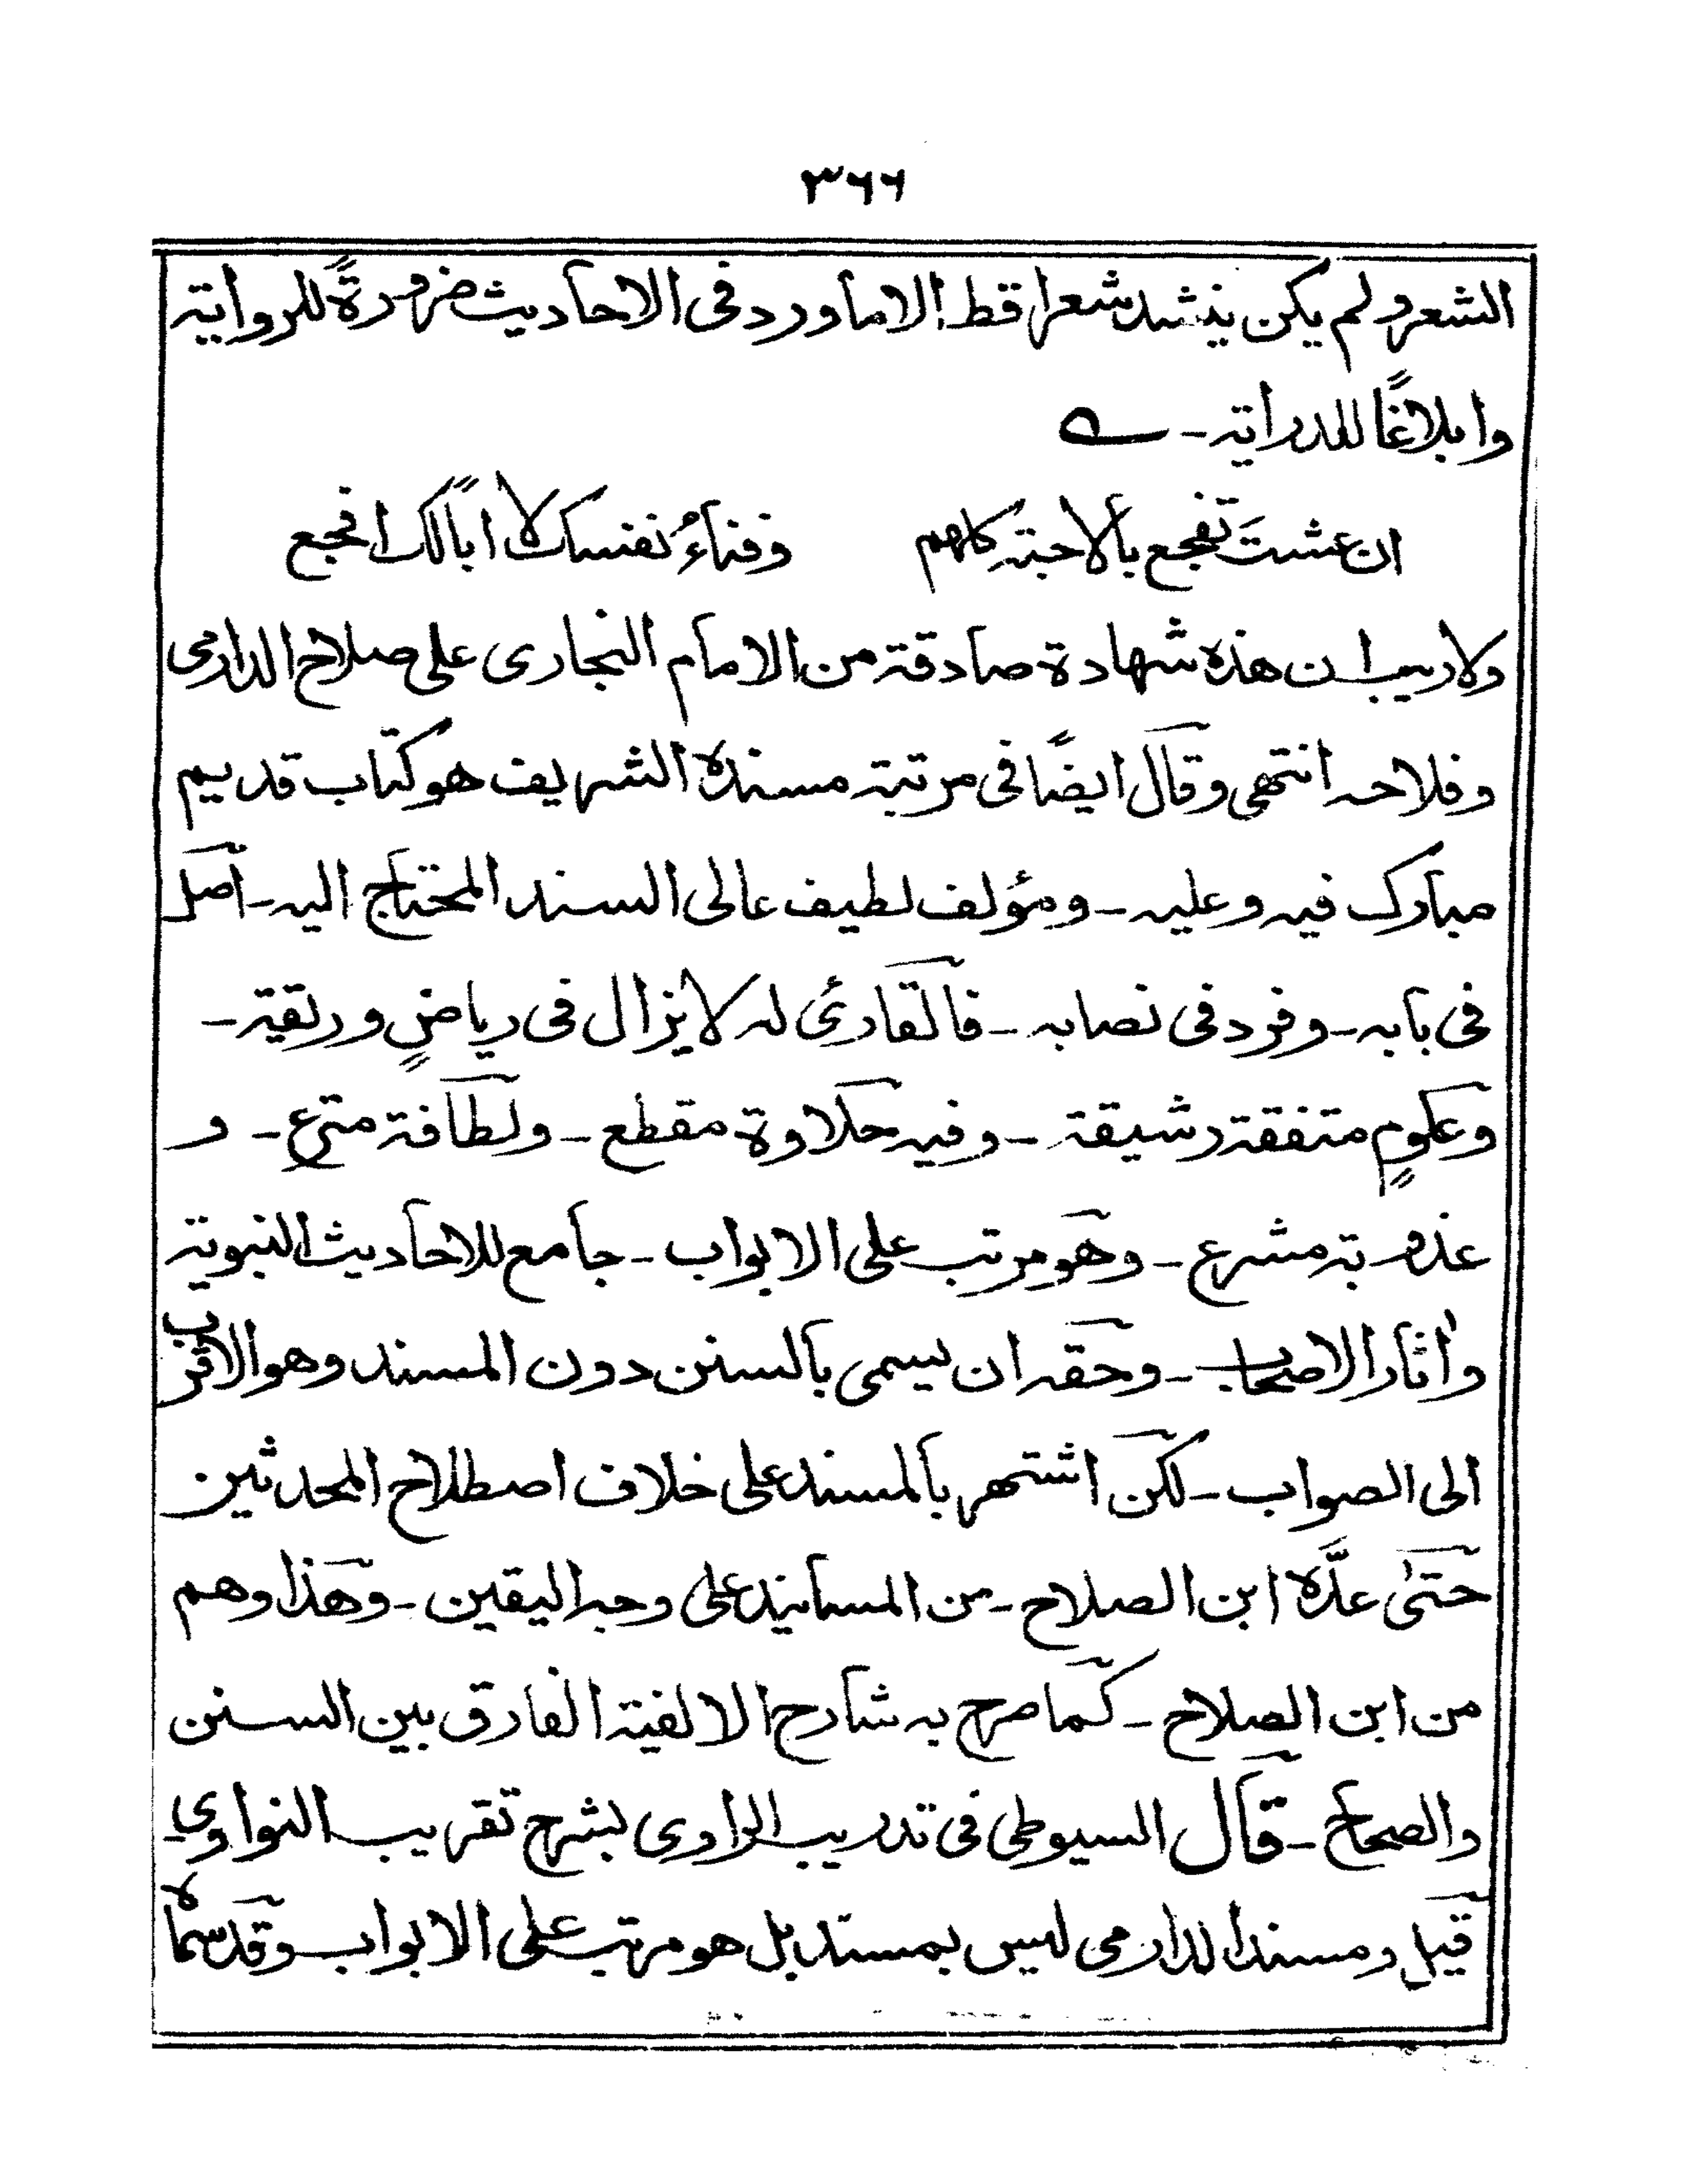 ٣٦٦
الشعر ولم يكن ينشد شعرا قط الا ما ورد فى الاحاديث ضرورةً للرواية
وابلاغًا للدراية -
ان عشتَ تفجع بالاحبة كلهم وفناءُ نفسك لا ابًا لك افجع
ولا ريب ان هذه شهادة صادقة من الامام البخارى على صلاح الدارمى
وفلاحه انتهى وقال ايضًا فى مرتبة مسنده الشريف هو كتاب قديم
مبارك فيه وعليه - ومؤلف لطيف عالى السند المحتاج اليه - اصل
فى بابه - وفرد فى نصابه - فالقارئ له لا يزال فى رياضٍ وريقة -
وعلومٍ متفقة رشيقة - وفيه حلاوة مقطع - ولطافة مترع - و
عذوبة مشرع - وهو مرتب على الابواب - جامع للاحاديث النبوية
واٰثار الاصحاب - وحقه ان يسمى بالسنن دون المسند وهو الاقرب
الى الصواب - لكن اشتهر بالمسند على خلاف اصطلاح المحدثين
حتىٰ عدَّه ابن الصلاح - من المسانيد على وجه اليقين - وهذا وهم
من ابن الصلاح - كما صرح به شارح الالفية الفارق بين السنن
والصحاح - قال السيوطى فى تدريب الراوى بشرح تقريب النواوي
قيل ومسند الدارمى ليس بمسند بل هو مرتب على الابواب وقد سماه